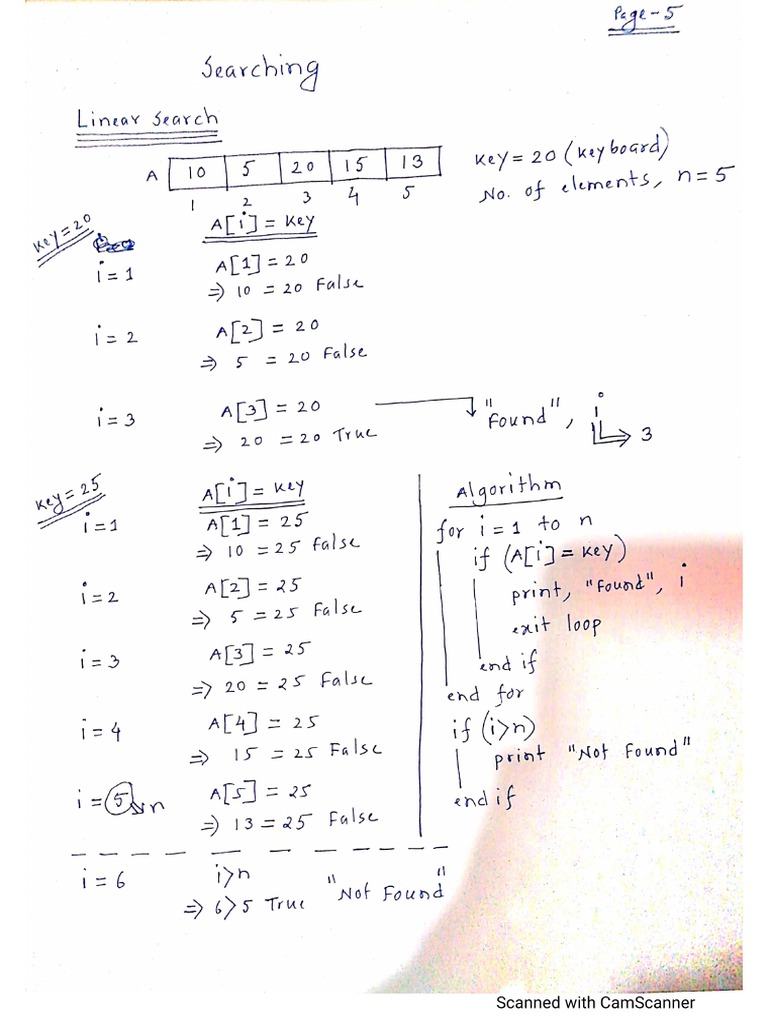 Page-5
Searching
Linear Search
A 10 5 20 15 13
1 2 3 4 5
Key = 20 (keyboard)
No. of elements, n = 5
Key = 20
A[i] = Key
i = 1 A[1] = 20
⇒ 10 = 20 False
i = 2 A[2] = 20
⇒ 5 = 20 False
i = 3 A[3] = 20
⇒ 20 = 20 True
"Found", i
3
Key = 25
A[i] = Key
i = 1 A[1] = 25
⇒ 10 = 25 False
i = 2 A[2] = 25
⇒ 5 = 25 False
i = 3 A[3] = 25
⇒ 20 = 25 False
i = 4 A[4] = 25
⇒ 15 = 25 False
i = 5 n A[5] = 25
⇒ 13 = 25 False
i = 6 i>n
⇒ 6>5 True "Not Found"
Algorithm
for i = 1 to n
if (A[i] = Key)
print, "Found", i
exit loop
end if
end for
if (i>n)
print "Not Found"
end if
Scanned with CamScanner